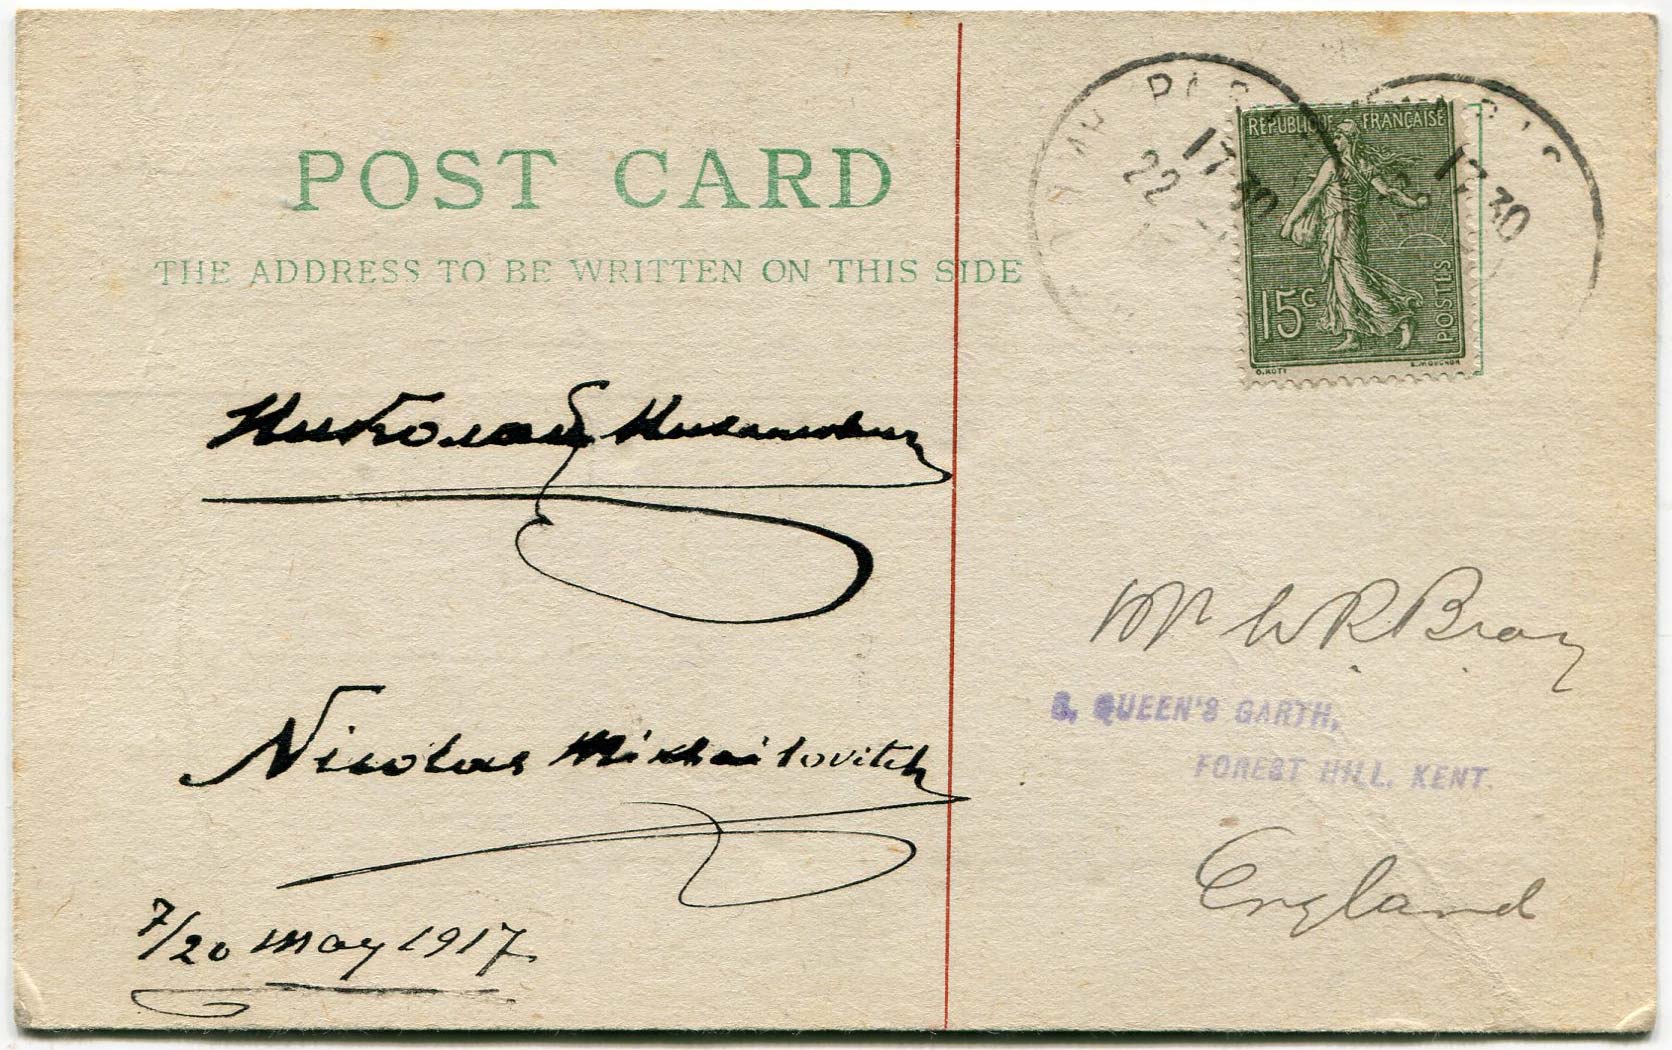 POST CARD
THE ADDRESS TO BE WRITTEN ON THIS SIDE
Николай Михайлович
Nicolas Mikhailovitch
7/20 May 1917.
RÉPUBLIQUE FRANÇAISE
15c POSTES
O. ROTY E. MOUCHON
17 30
22
17 30
Mr W R Bray
8, QUEEN'S GARTH,
FOREST HILL, KENT.
England